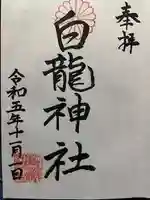 奉拝
白龍神社
令和五年十一月一日